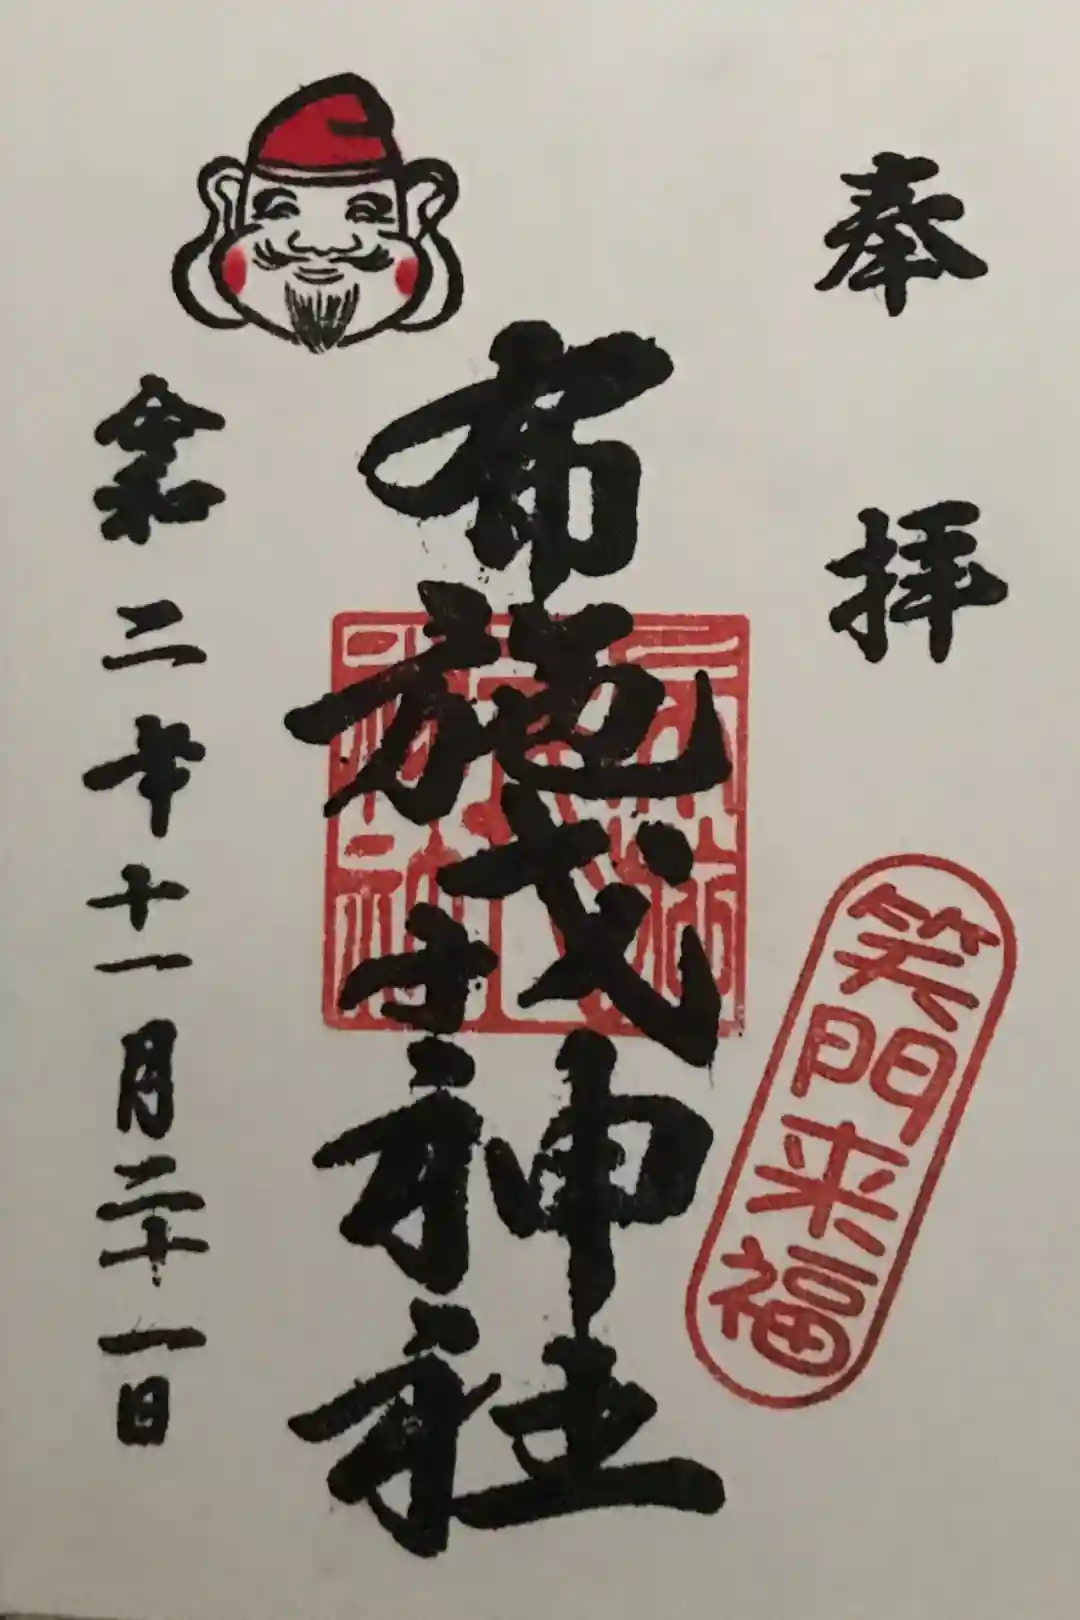 奉拝
笑門来福
布施戎神社
令和二年十一月二十一日